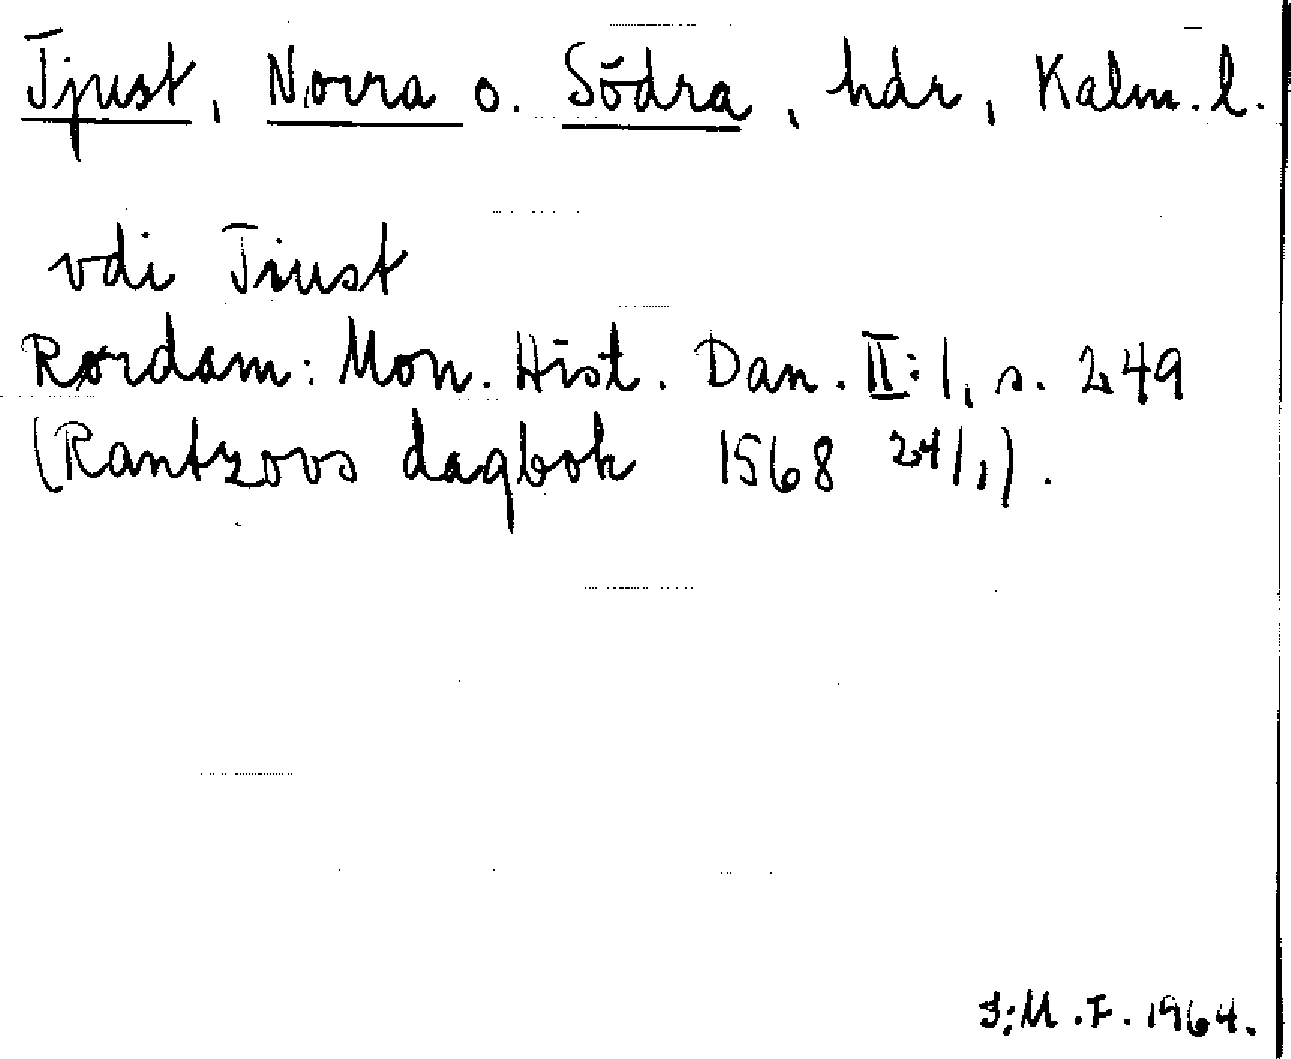 Tjust, Norra o. Södra, hdr, Kalm. l.
vdi Tiust
Rørdam: Mon. Hist. Dan. II:1, s. 249
(Rantzovs dagbok 1568 24/1).
I;M.F. 1964.